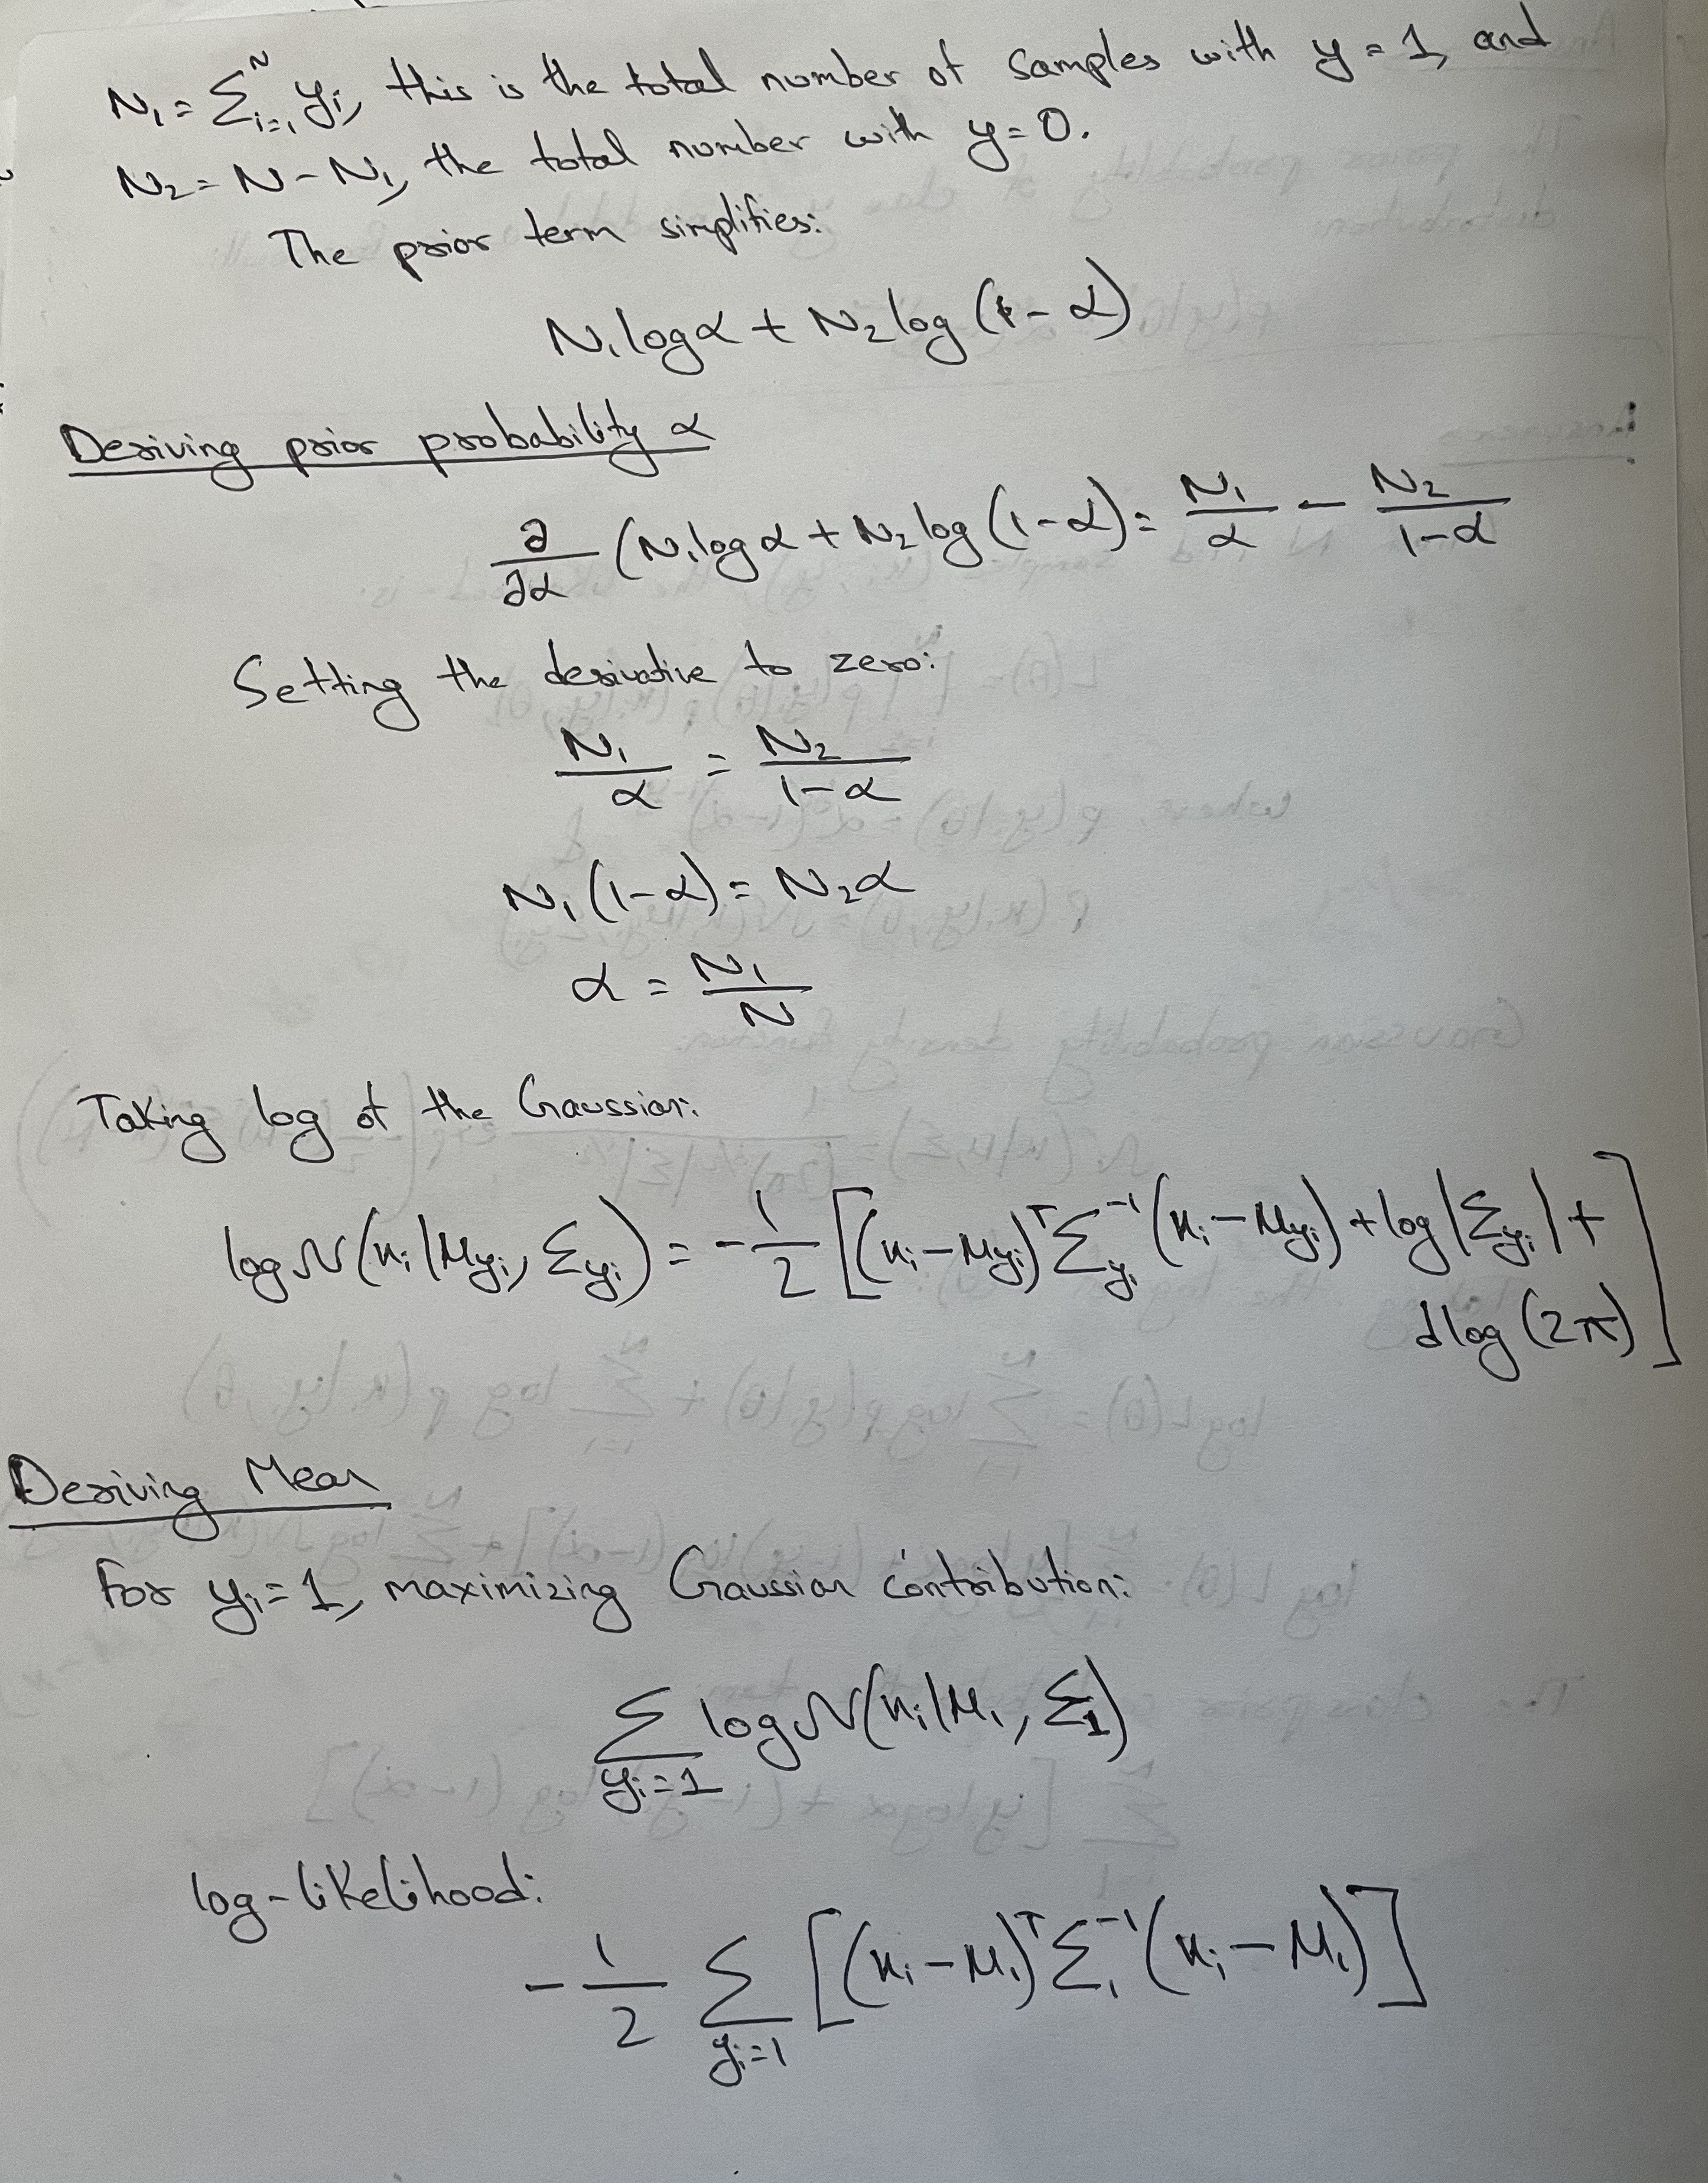 N₁ = Σᵢ₌₁ᴺ yᵢ, this is the total number of samples with y = 1, and
N₂ = N - N₁, the total number with y = 0.
The prior term simplifies:
N₁ log α + N₂ log (1 - α)
Deriving prior probability α
∂/∂α (N₁ log α + N₂ log (1 - α) = N₁/α - N₂/(1-α)
Setting the derivative to zero:
N₁/α = N₂/(1-α)
N₁ (1-α) = N₂α
α = N₁/N
Taking log of the Gaussian:
log N(xᵢ|μyᵢ, Σyᵢ) = -1/2 [(xᵢ - μyᵢ)ᵀ Σyᵢ⁻¹ (xᵢ - μyᵢ) + log|Σyᵢ| +
d log (2π)]
Deriving Mean
For yᵢ = 1, maximizing Gaussian contribution:
Σ_{yᵢ=1} log N(xᵢ|μ₁, Σ₁)
log-likelihood:
-1/2 Σ_{yᵢ=1} [(xᵢ - μ₁)ᵀ Σ₁⁻¹ (xᵢ - μ₁)]